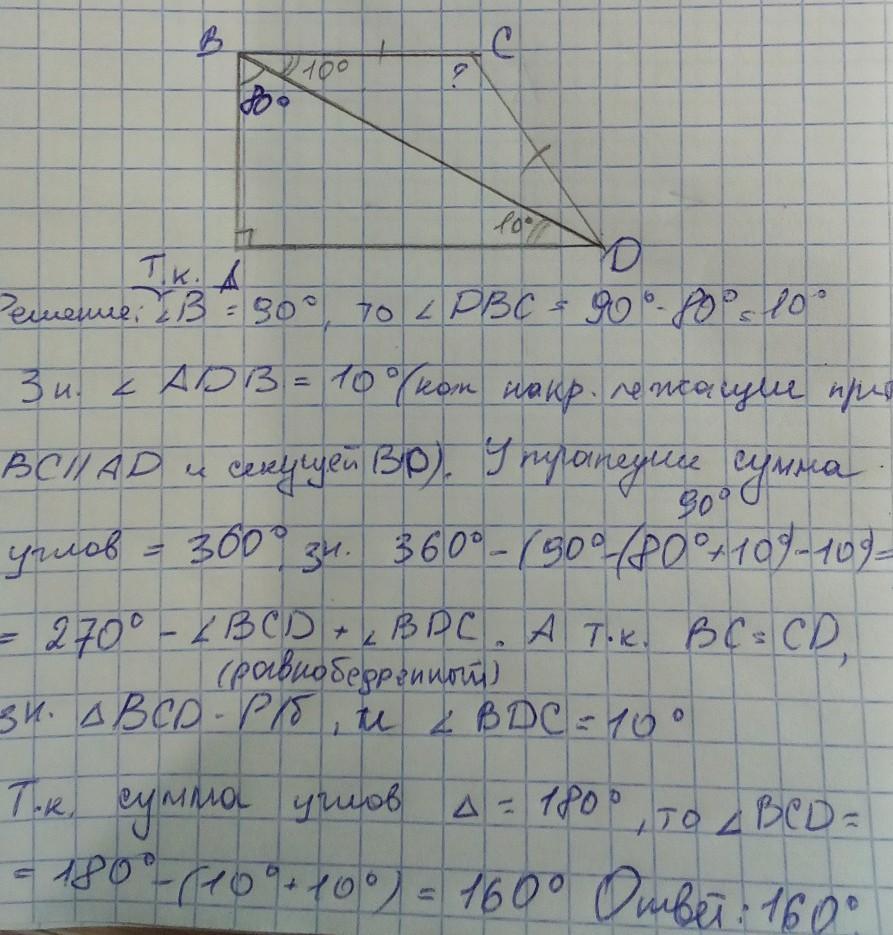 B C
10° ?
80°
10°
A D
Т.к.
Решение: ∠B = 90°, то ∠DBC = 90°-80°=10°
Зн. ∠ADB = 10° (как накр. лежащие при
BC//AD и секущей BD). У трапеции сумма
90°
углов = 360°, зн. 360°-(90°-(80°+10°)-10°)=
= 270° - ∠BCD + ∠BDC. А т.к. BC=CD,
(равнобедренный)
зн. △BCD - Р/б, и ∠BDC = 10°
Т.к. сумма углов △ = 180°, то ∠BCD =
= 180°-(10°+10°) = 160° Ответ: 160°.